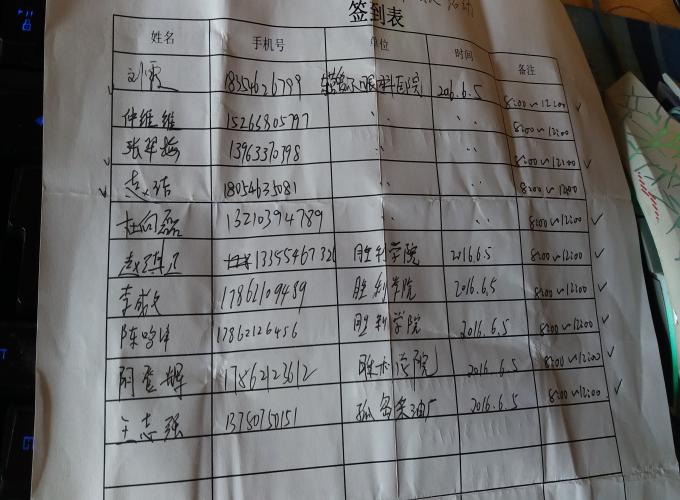 活动
签到表
姓名 手机号 单位 时间 备注
刘霞 18354626799 眼科医院 2016.6.5 8:00~12:00
仲维维 15263805797 〃 〃 8:00~12:00
张翠梅 13963370398 〃 〃 8:00~12:00
18054635081 〃 〃 8:00~12:00
杜向磊 13210394789 〃 〃 8:00~12:00
胜利学院 2016.6.5 8:00~12:00
李成文 17862109489 胜利学院 2016.6.5 8:00~12:00
陈 17862126456 胜利学院 2016.6.5 8:00~12:00
17862123612 学院 2016.6.5 8:00~12:00
王志强 13780750151 2016.6.5 8:00~12:00